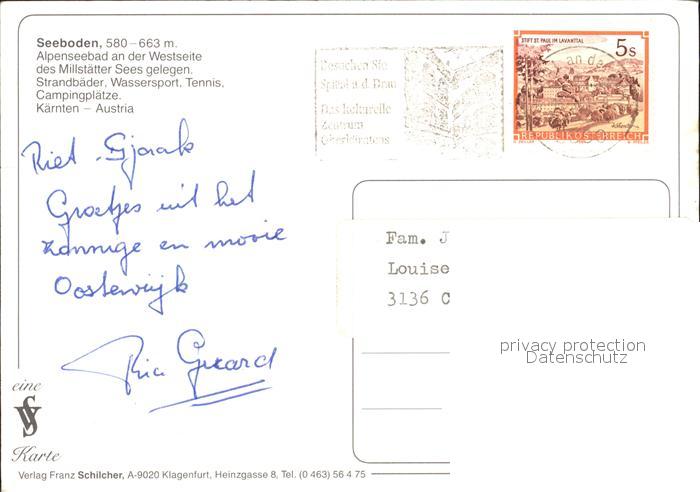 Seeboden, 580–663 m.
Alpenseebad an der Westseite
des Millstätter Sees gelegen.
Strandbäder, Wassersport, Tennis,
Campingplätze.
Kärnten – Austria
Besuchen Sie
Spittal a.d. Drau
Das kulturelle
Zentrum
Oberkärntens
STIFT ST. PAUL IM LAVANTTAL
5s
REPUBLIK ÖSTERREICH
an der
Riet
Groetjes uit het
zonnige en mooie
Oostenrijk
Ria
Fam. J
Louise
3136 C
privacy protection
Datenschutz
eine
Karte
Verlag Franz Schilcher, A-9020 Klagenfurt, Heinzgasse 8, Tel. (0 463) 56 4 75